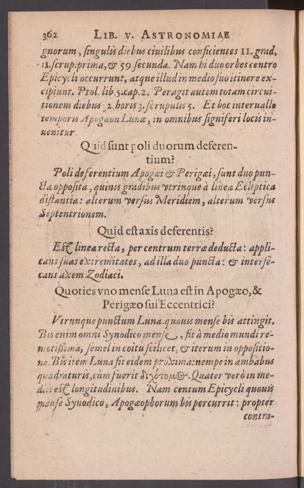 362 LIB. V. ASTRONOMIAE
gnorum, singulis diebus ciuilibus conficientes 11. grad.
11. scrup: prima, & 59. secunda. Nam hi duo orbes centro
Epicycli occurrunt, atque illud in medio suo itinere ex-
cipiunt. Ptol. lib. 5. cap. 2. Peragit autem totam circui-
tionem diebus 2. horis 3. scrupulis 5. Et hoc interuallo
temporis Apogæon Lunæ, in omnibus signiferi locis in-
uenitur
Quid sunt poli duorum deferen-
tium?
Poli deferentium Apogæi & Perigæi, sunt duo pun-
cta opposita, quinis gradibus vtrinque à linea Ecliptica
distantia: alterum versus Meridiem, alterum versus
Septentrionem.
Quid est axis deferentis?
Est linea recta, per centrum terræ deducta: appli-
cans suas extremitates, ad illa duo puncta: & interse-
cans axem Zodiaci.
Quoties vno mense Luna est in Apogæo, &
Perigæo sui Eccentrici?
Vtrunque punctum Luna quouis mense bis attingit.
Bis enim omni Synodico mense, fit à medio mundi re-
motissima, semel in coitu scilicet, & iterum in oppositio-
ne. Bis item Luna fit eidem proxima: nempe in ambabus
quadraturis, cùm fuerit διχότομ@. Quater verò in me-
dijs est longitudinibus. Nam centum Epicycli quouis
mense Synodico, Apogæophorum bis percurrit: propter
contra-